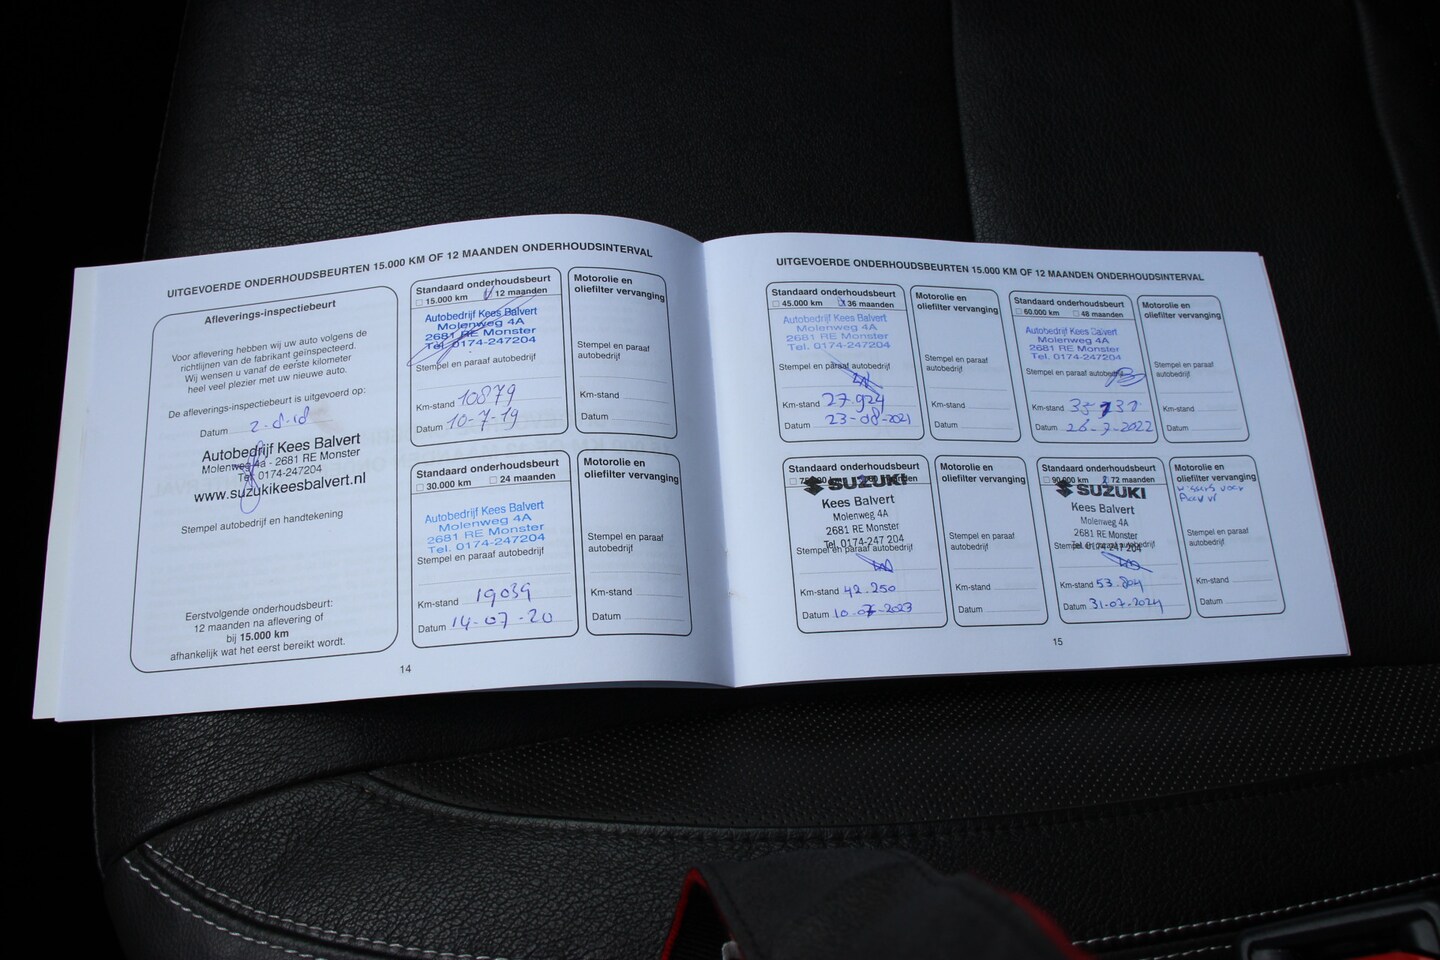 UITGEVOERDE ONDERHOUDSBEURTEN 15.000 KM OF 12 MAANDEN ONDERHOUDSINTERVAL
Afleverings-inspectiebeurt
Voor aflevering hebben wij uw auto volgens de
richtlijnen van de fabrikant geïnspecteerd.
Wij wensen u vanaf de eerste kilometer
heel veel plezier met uw nieuwe auto.
De afleverings-inspectiebeurt is uitgevoerd op:
Datum 2-8-18
Autobedrijf Kees Balvert
Molenweg 4a - 2681 RE Monster
Tel. 0174-247204
www.suzukikeesbalvert.nl
Stempel autobedrijf en handtekening
Eerstvolgende onderhoudsbeurt:
12 maanden na aflevering of
bij 15.000 km
afhankelijk wat het eerst bereikt wordt.
Standaard onderhoudsbeurt
15.000 km 12 maanden
Autobedrijf Kees Balvert
Molenweg 4A
2681 RE Monster
Tel. 0174-247204
Stempel en paraaf autobedrijf
Km-stand 10879
Datum 10-7-19
Motorolie en
oliefilter vervanging
Stempel en paraaf
autobedrijf
Km-stand
Datum
Standaard onderhoudsbeurt
30.000 km 24 maanden
Autobedrijf Kees Balvert
Molenweg 4A
2681 RE Monster
Tel. 0174-247204
Stempel en paraaf autobedrijf
Km-stand 19039
Datum 14-07-20
Motorolie en
oliefilter vervanging
Stempel en paraaf
autobedrijf
Km-stand
Datum
14
UITGEVOERDE ONDERHOUDSBEURTEN 15.000 KM OF 12 MAANDEN ONDERHOUDSINTERVAL
Standaard onderhoudsbeurt
45.000 km 36 maanden
Autobedrijf Kees Balvert
Molenweg 4A
2681 RE Monster
Tel. 0174-247204
Stempel en paraaf autobedrijf
Km-stand 27924
Datum 23-08-2021
Motorolie en
oliefilter vervanging
Stempel en paraaf
autobedrijf
Km-stand
Datum
Standaard onderhoudsbeurt
60.000 km 48 maanden
Autobedrijf Kees Balvert
Molenweg 4A
2681 RE Monster
Tel. 0174-247204
Stempel en paraaf autobedrijf
Km-stand
Datum 26-7-2022
Motorolie en
oliefilter vervanging
Stempel en paraaf
autobedrijf
Km-stand
Datum
Standaard onderhoudsbeurt
maanden
SUZUKI
Kees Balvert
Molenweg 4A
2681 RE Monster
Tel. 0174-247 204
Stempel en paraaf autobedrijf
Km-stand 42.250
Datum 10-07-2023
Motorolie en
oliefilter vervanging
Stempel en paraaf
autobedrijf
Km-stand
Datum
Standaard onderhoudsbeurt
90.000 km 72 maanden
SUZUKI
Kees Balvert
Molenweg 4A
2681 RE Monster
Tel. 0174-247 204
Stempel en paraaf autobedrijf
Km-stand 53.804
Datum 31-07-2024
Motorolie en
oliefilter vervanging
Stempel en paraaf
autobedrijf
Km-stand
Datum
15